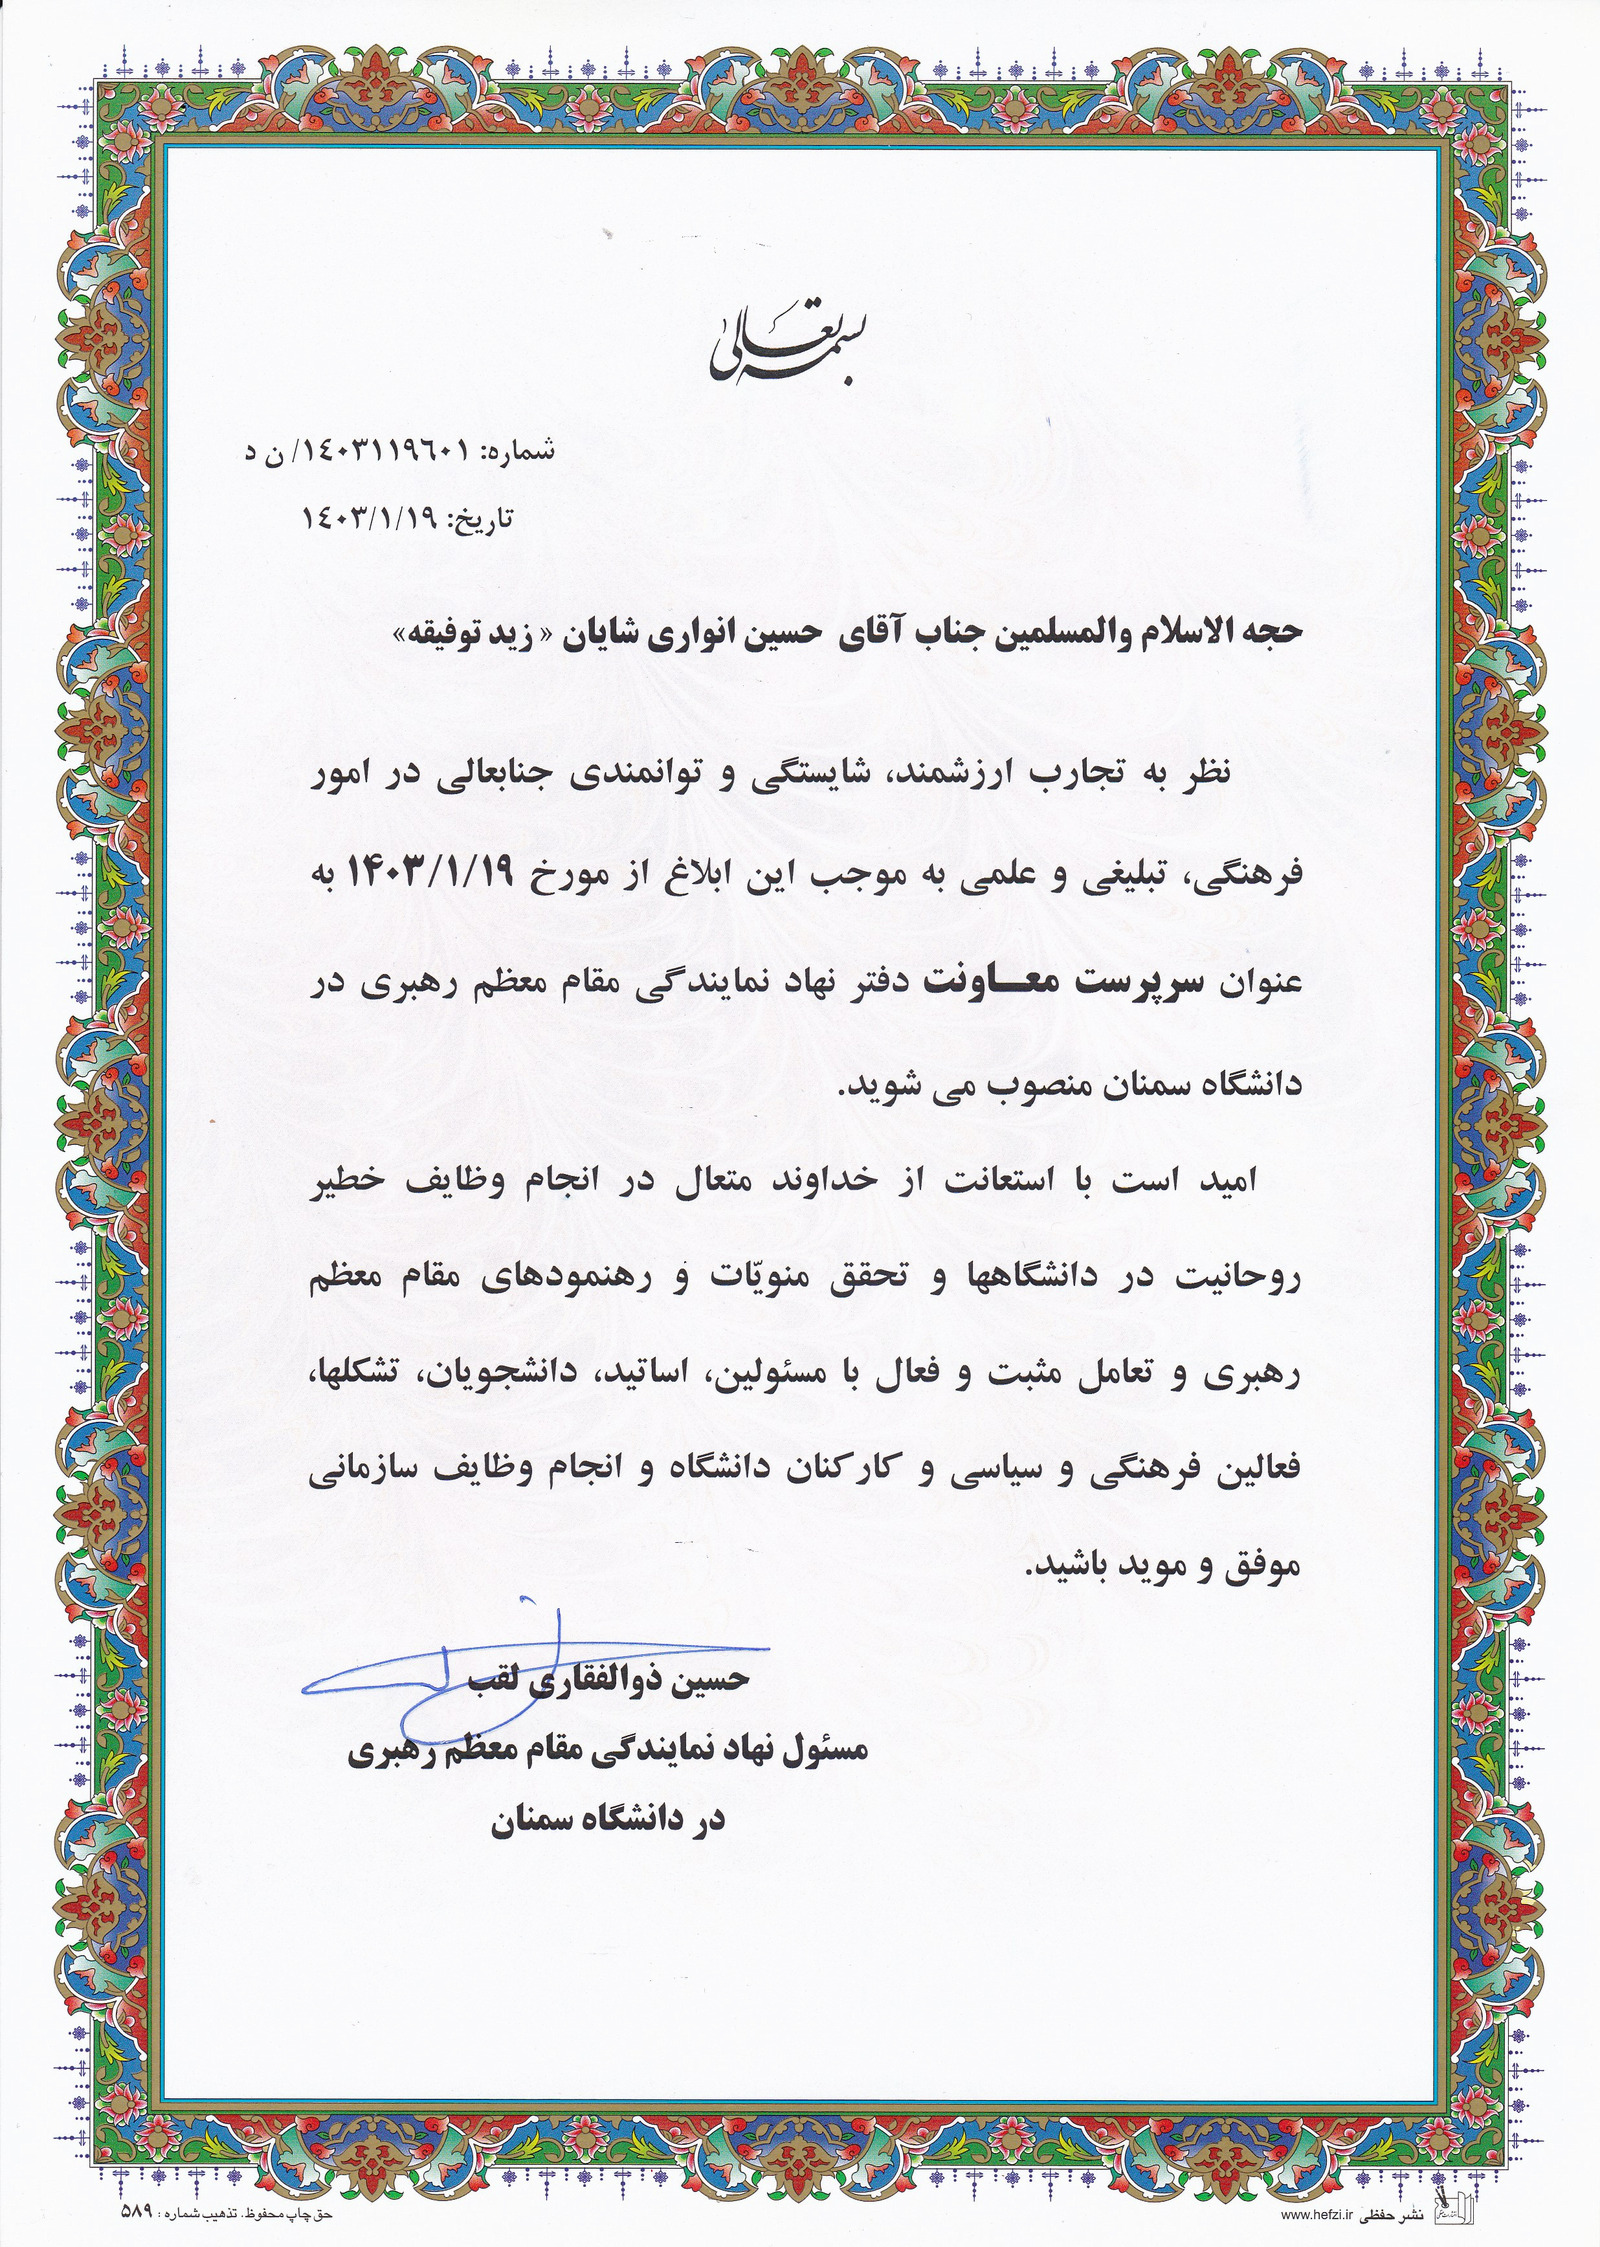 بسمه تعالی
شماره: ١٤٠٣١١٩٦٠١/ ن د
تاریخ: ١٤٠٣/١/١٩
حجه الاسلام والمسلمین جناب آقای حسین انواری شایان « زید توفیقه»
نظر به تجارب ارزشمند، شایستگی و توانمندی جنابعالی در امور
فرهنگی، تبلیغی و علمی به موجب این ابلاغ از مورخ ۱۴۰۳/۱/۱۹ به
عنوان سرپرست معـــاونت دفتر نهاد نمایندگی مقام معظم رهبری در
دانشگاه سمنان منصوب می شوید.
امید است با استعانت از خداوند متعال در انجام وظایف خطیر
روحانیت در دانشگاهها و تحقق منویّات و رهنمودهای مقام معظم
رهبری و تعامل مثبت و فعال با مسئولین، اساتید، دانشجویان، تشکلها،
فعالین فرهنگی و سیاسی و کارکنان دانشگاه و انجام وظایف سازمانی
موفق و موید باشید.
حسین ذوالفقاری لقب
مسئول نهاد نمایندگی مقام معظم رهبری
در دانشگاه سمنان
نشر حفظی www.hefzi.ir
حق چاپ محفوظ. تذهیب شماره : ۵۸۹